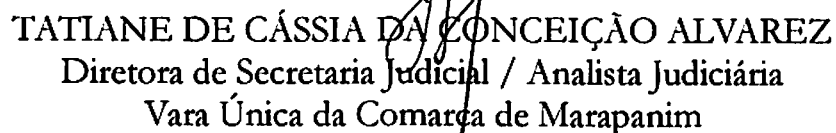 TATIANE DE CÁSSIA DA CONCEIÇÃO ALVAREZ
Diretora de Secretaria Judicial / Analista Judiciária
Vara Única da Comarca de Marapanim